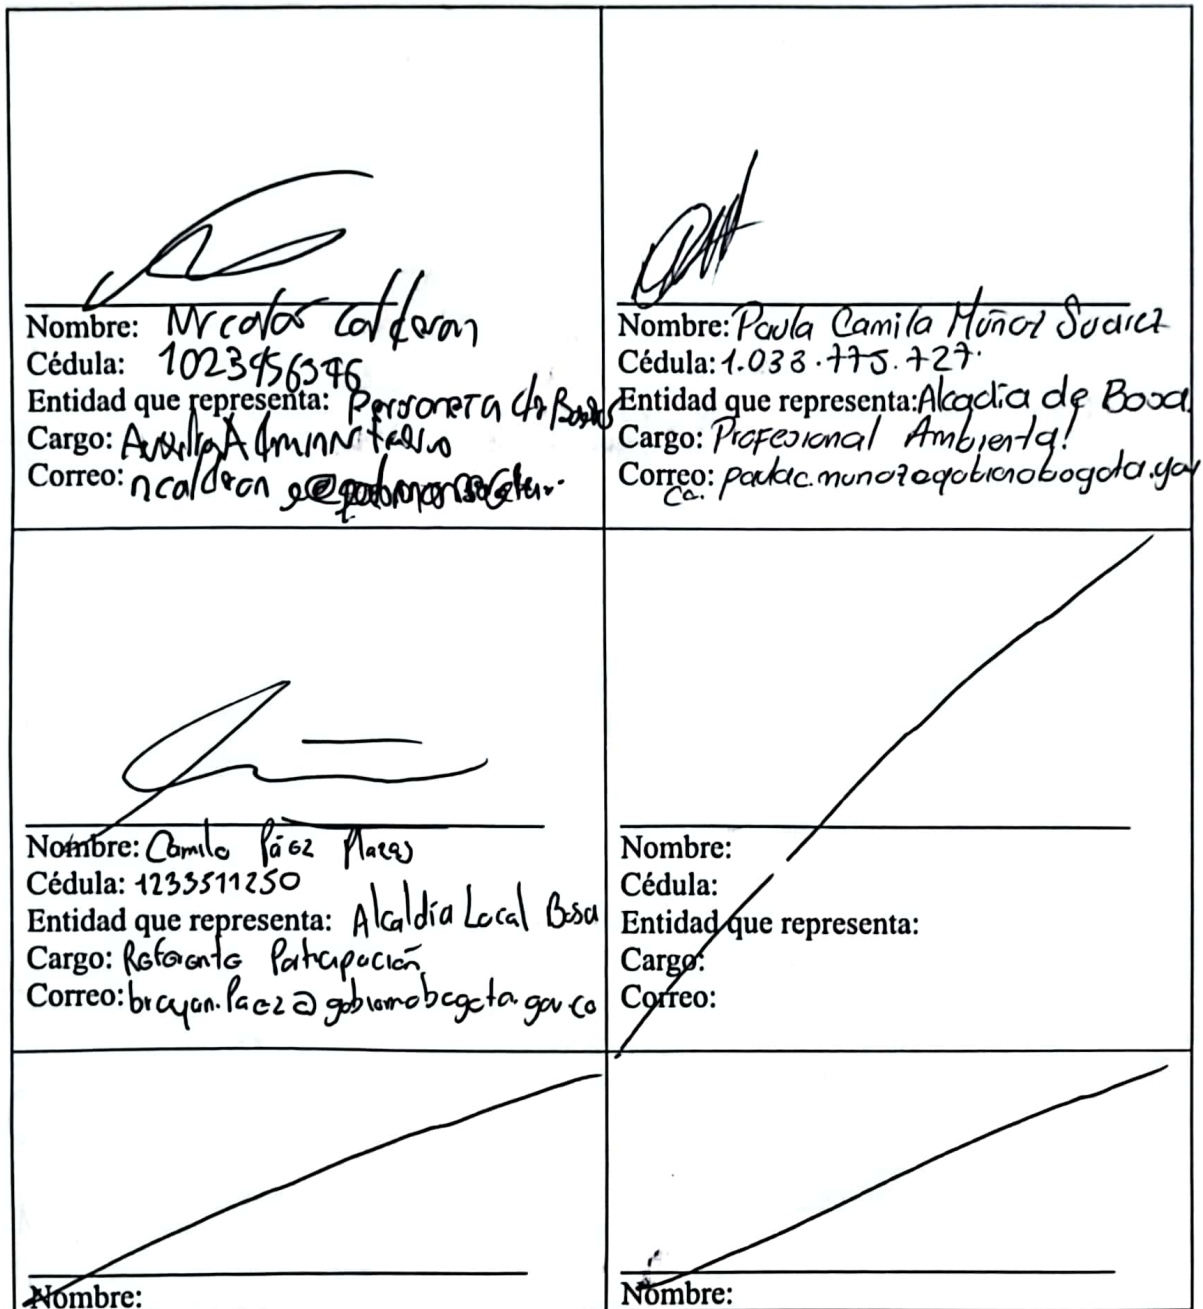 Nombre: Nicolas Calderon
Cédula: 1023956376
Entidad que representa: Personeria de Bosa
Cargo: Auxiliar Administrativo
Correo: ncalderon
Nombre: Paula Camila Muñoz Suarez
Cédula: 1.033.775.727.
Entidad que representa: Alcadia de Bosa
Cargo: Profesional Ambiental
Correo: paulac.munoz@gobiernobogota.gov
co.
Nombre: Camilo Páez Plazas
Cédula: 1233511250
Entidad que representa: Alcaldía Local Bosa
Cargo: Referente Participación
Correo: brayan.Paez@gobiernobogota.gov.co
Nombre:
Cédula:
Entidad que representa:
Cargo:
Correo:
Nombre:
Nombre: